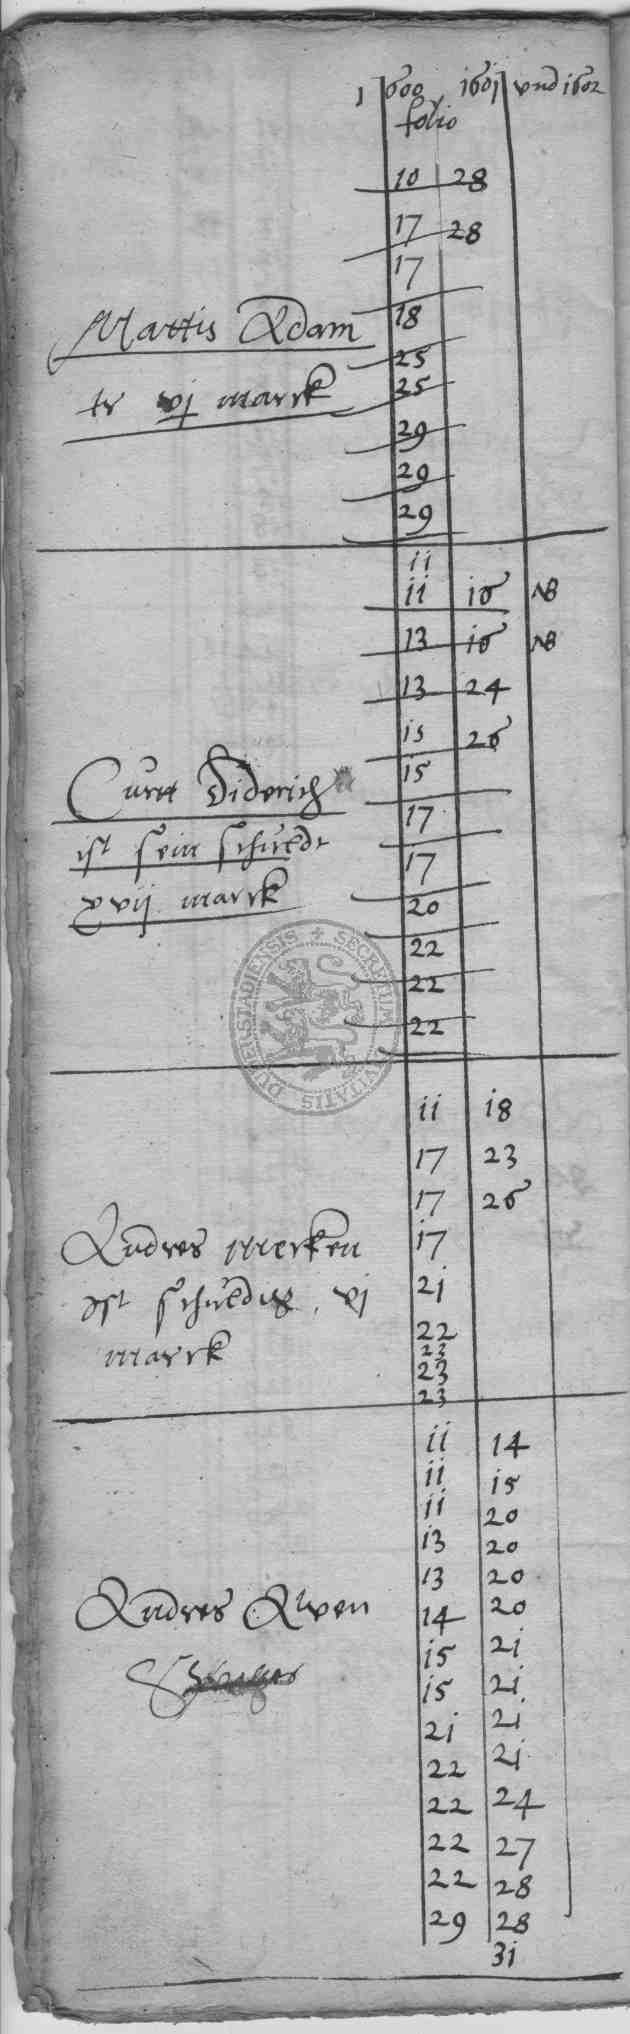 1600 1601 vnd 1602
folio
10 28
17 28
17
Mattis Adam 18
25
tr vj marck 25
29
29
29
ii
ii 16 NB
13 16 NB
13 24
is 26
Curtt Diderich 15
17
ist sein schuldt 17
xvij marck 20
22
22
22
SECRETUM CIVITATIS DUDERSTADIENSIS
ii 18
17 23
17 26
Andres Mercken 17
ist schuldig vj 21
22
marck 23
23
23
ii 14
ii 15
ii 20
13 20
13 20
Andres 14 20
15 21
15 21
21 21
22 21
22 24
22 27
22 28
29 28
31